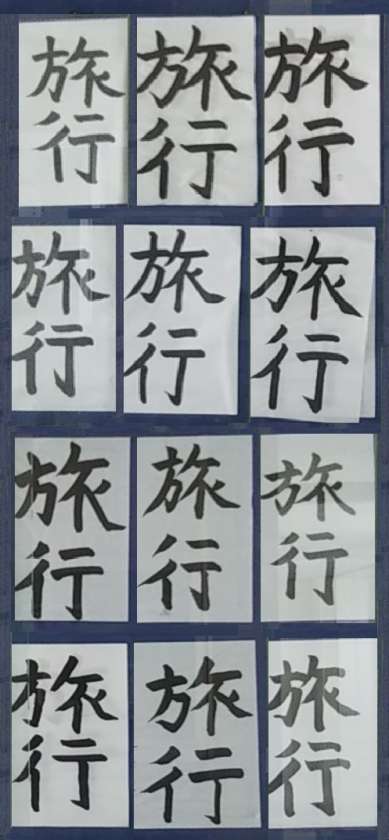 旅行
旅行
旅行
旅行
旅行
旅行
旅行
旅行
旅行
旅行
旅行
旅行